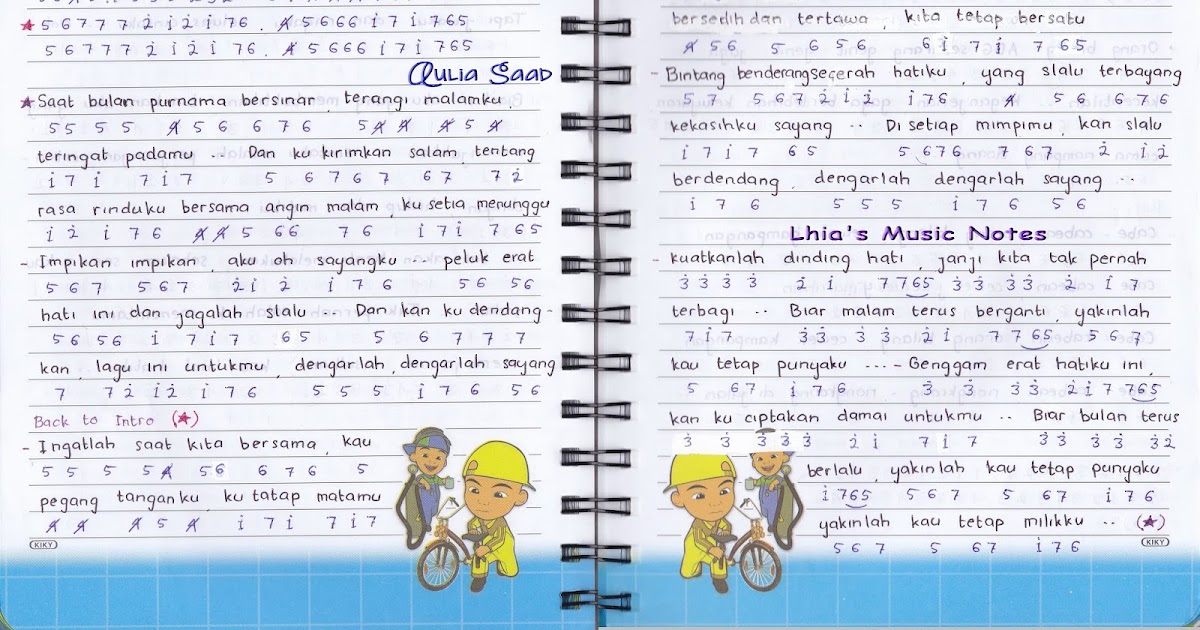 ★ 5 6 7 7 7 2̇ i 2̇ i 7 6 . 4̸ 5 6 6 6 i 7 i 7 6 5
5 6 7 7 7 2̇ i 2̇ i 7 6 . 4̸ 5 6 6 6 i 7 i 765
Qulia Saad
★ Saat bulan purnama bersinar, terangi malamku
5 5 5 5 4̸ 5 6 6 7 6 5 4̸ 4̸ 4̸ 5 4̸
teringat padamu ... Dan ku kirimkan salam, tentang
i 7 i 7 i 7 5 6 7 6 7 6 7 7 2̇
rasa rinduku bersama angin malam, ku setia menunggu
i 2̇ i 7 6 4̸ 4̸ 5 6 6 7 6 i 7 i 7 6 5
- Impikan impikan, aku oh sayangku ... peluk erat
5 6 7 5 6 7 2̇ i 2̇ i 7 6 5 6 5 6
hati ini dan jagalah slalu ... Dan kan ku dendang -
5 6 5 6 i 7 i 7 6 5 5 6 7 7 7
kan, lagu ini untukmu, dengarlah, dengarlah sayang
7 7 2̇ i 2̇ i 7 6 5 5 5 i 7 6 5 6
Back to Intro (★)
- Ingatlah saat kita bersama, kau
5 5 5 5 4̸ 5 6 6 7 6 5
pegang tanganku ku tatap matamu
4̸ 4̸ 4̸ 5 4̸ i 7 i 7 i 7
KIKY
bersedih dan tertawa, kita tetap bersatu
4̸ 5 6 5 6 5 6 6 i 7 i 7 6 5
- Bintang benderang secerah hatiku, yang slalu terbayang
5 7 5 6 7 2̇ i 2̇ i 7 6 4̸ 5 6 6 7 6
kekasihku sayang .. Di setiap mimpimu, kan slalu
i 7 i 7 6 5 5 6 7 6 7 6 7 2̇ i 2̇
berdendang, dengarlah dengarlah sayang ...
i 7 6 5 5 5 i 7 6 5 6
Lhia's Music Notes
- kuatkanlah dinding hati, janji kita tak pernah
3̇ 3̇ 3̇ 3̇ 2̇ i 7 7 6 5 3̇ 3̇ 3̇ 3̇ 2̇ i 7
terbagi .. Biar malam terus berganti, yakinlah
7 i 7 3̇ 3̇ 3̇ 3̇ 2̇ i 7 7 6 5 5 6 7
kau tetap punyaku ... - Genggam erat hatiku ini,
5 6 7 i 7 6 3̇ 3̇ 3̇ 3̇ 2̇ i 7 7 6 5
kan ku ciptakan damai untukmu .. Biar bulan terus
3̇ 3̇ 3̇ 3̇ 3̇ 2̇ i 7 i 7 3̇ 3̇ 3̇ 3̇ 3̇ 2̇
berlalu, yakinlah kau tetap punyaku
i 7 6 5 5 6 7 5 6 7 i 7 6
yakinlah kau tetap milikku .. (★)
5 6 7 5 6 7 i 7 6
KIKY